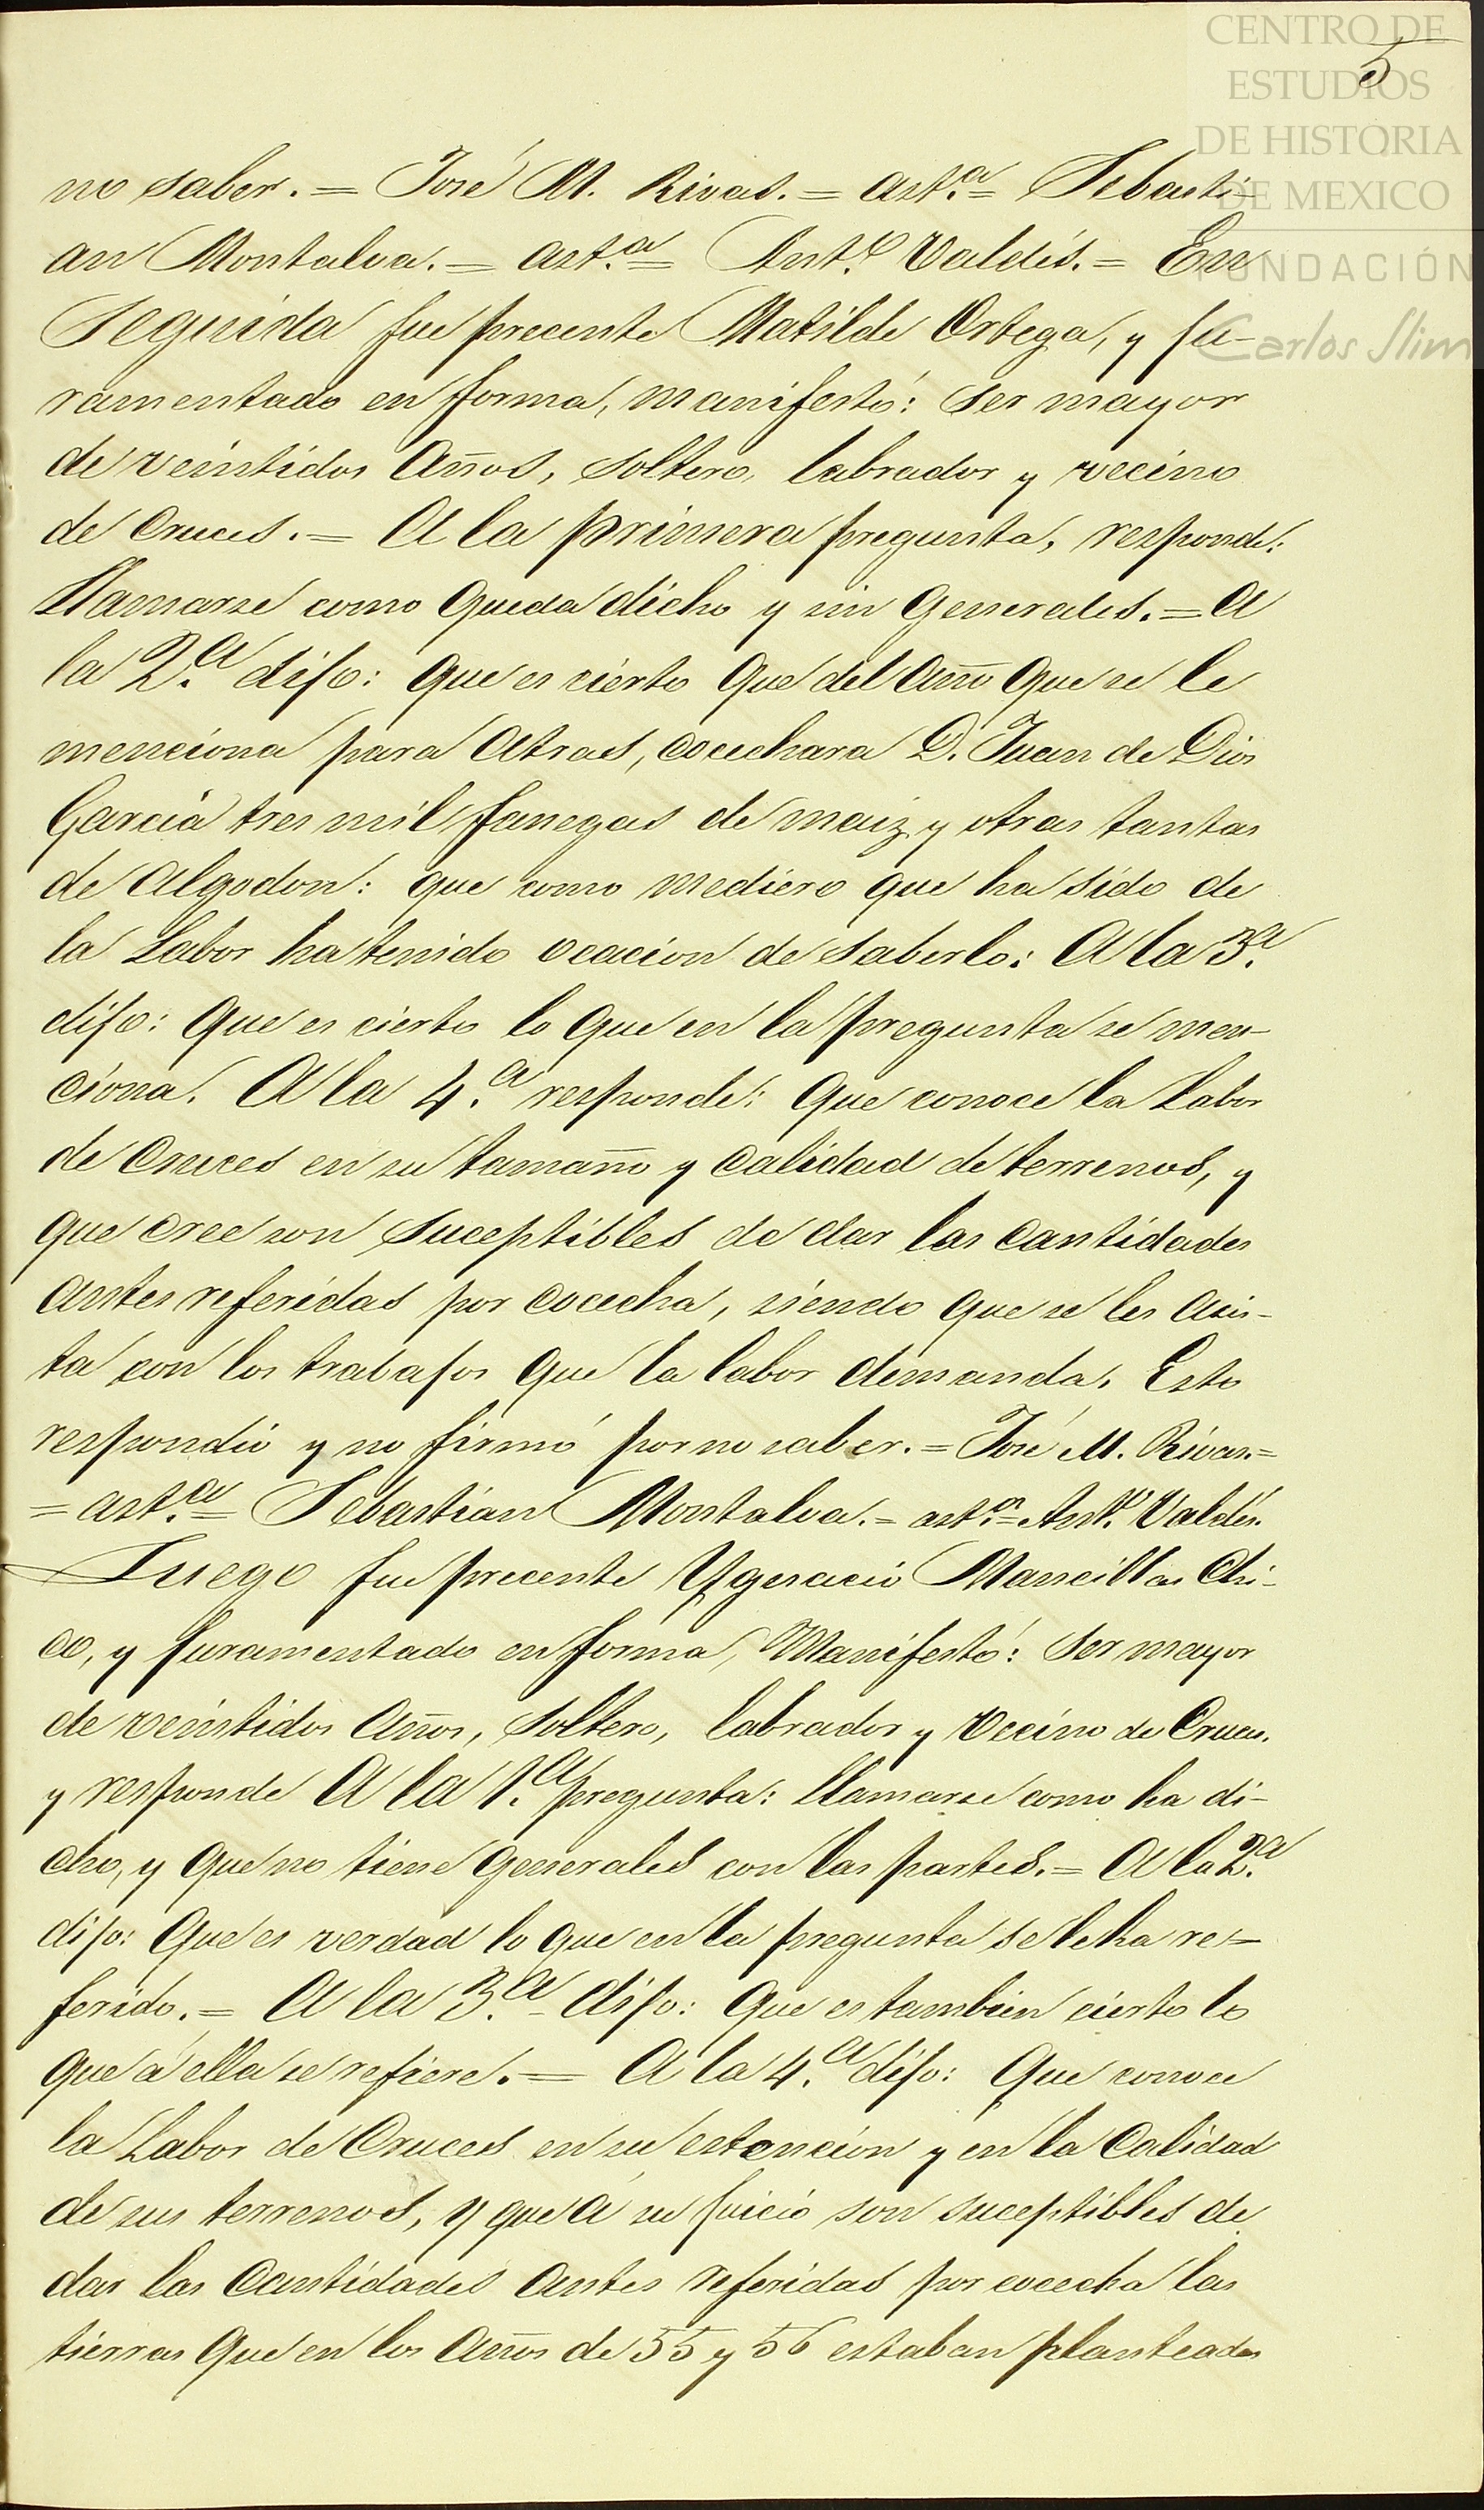 CENTRO DE
ESTUDIOS
DE HISTORIA
DE MEXICO
FUNDACIÓN
Carlos Slim
5
no saber. = José M. Rivas. = ast.ª = Sebasti-
an Montalva. = ast.ª = Ant.º Valdés. = En
Seguida fue precente Matilde Ortega, y ju-
ramentado en forma, manifestó: ser mayor
de veintidos Años, soltero, labrador y vecino
de Cruces. = A la primera pregunta, responde:
llamarse como queda dicho y sin generales. = A
la 2.ª dijo: que es cierto que del Año que se le
menciona para Atras, cocechara D. Juan de Dios
García tres mil fanegas de maiz y otras tantas
de Algodon: que como mediero que ha sido de
la Labor ha tenido ocacion de saberlo: A la 3.ª
dijo: que es cierto lo que en la pregunta se men-
ciona. A la 4.ª responde: que conoce la Labor
de Cruces en su tamaño y calidad de terrenos, y
que cree son suceptibles de dar las cantidades
antes referidas por cocecha, siendo que se les asis-
ta con los trabajos que la labor demanda. Esto
respondió y no firmó por no saber. = José M. Rivas. =
= ast.ª = Sebastian Montalva. = ast.ª = Ant.º Valdés.
Luego fue precente Ygnacio Mancillas Chi-
co, y juramentado en forma, Manifestó: ser mayor
de veintidos Años, soltero, labrador y vecino de Cruces.
y responde A la 1.ª pregunta: llamarse como ha di-
cho, y que no tiene generales con las partes. = A la 2.ª
dijo: que es verdad lo que en la pregunta se le ha re-
ferido. = A la 3.ª dijo: que es tambien cierto lo
que á ella se refiere. = A la 4.ª dijo: que conoce
la Labor de Cruces en su estencion y en la calidad
de sus terrenos, y que á su juicio son suceptibles de
dar las cantidades antes referidas por cocecha las
tierras que en los Años de 55 y 56 estaban planteadas